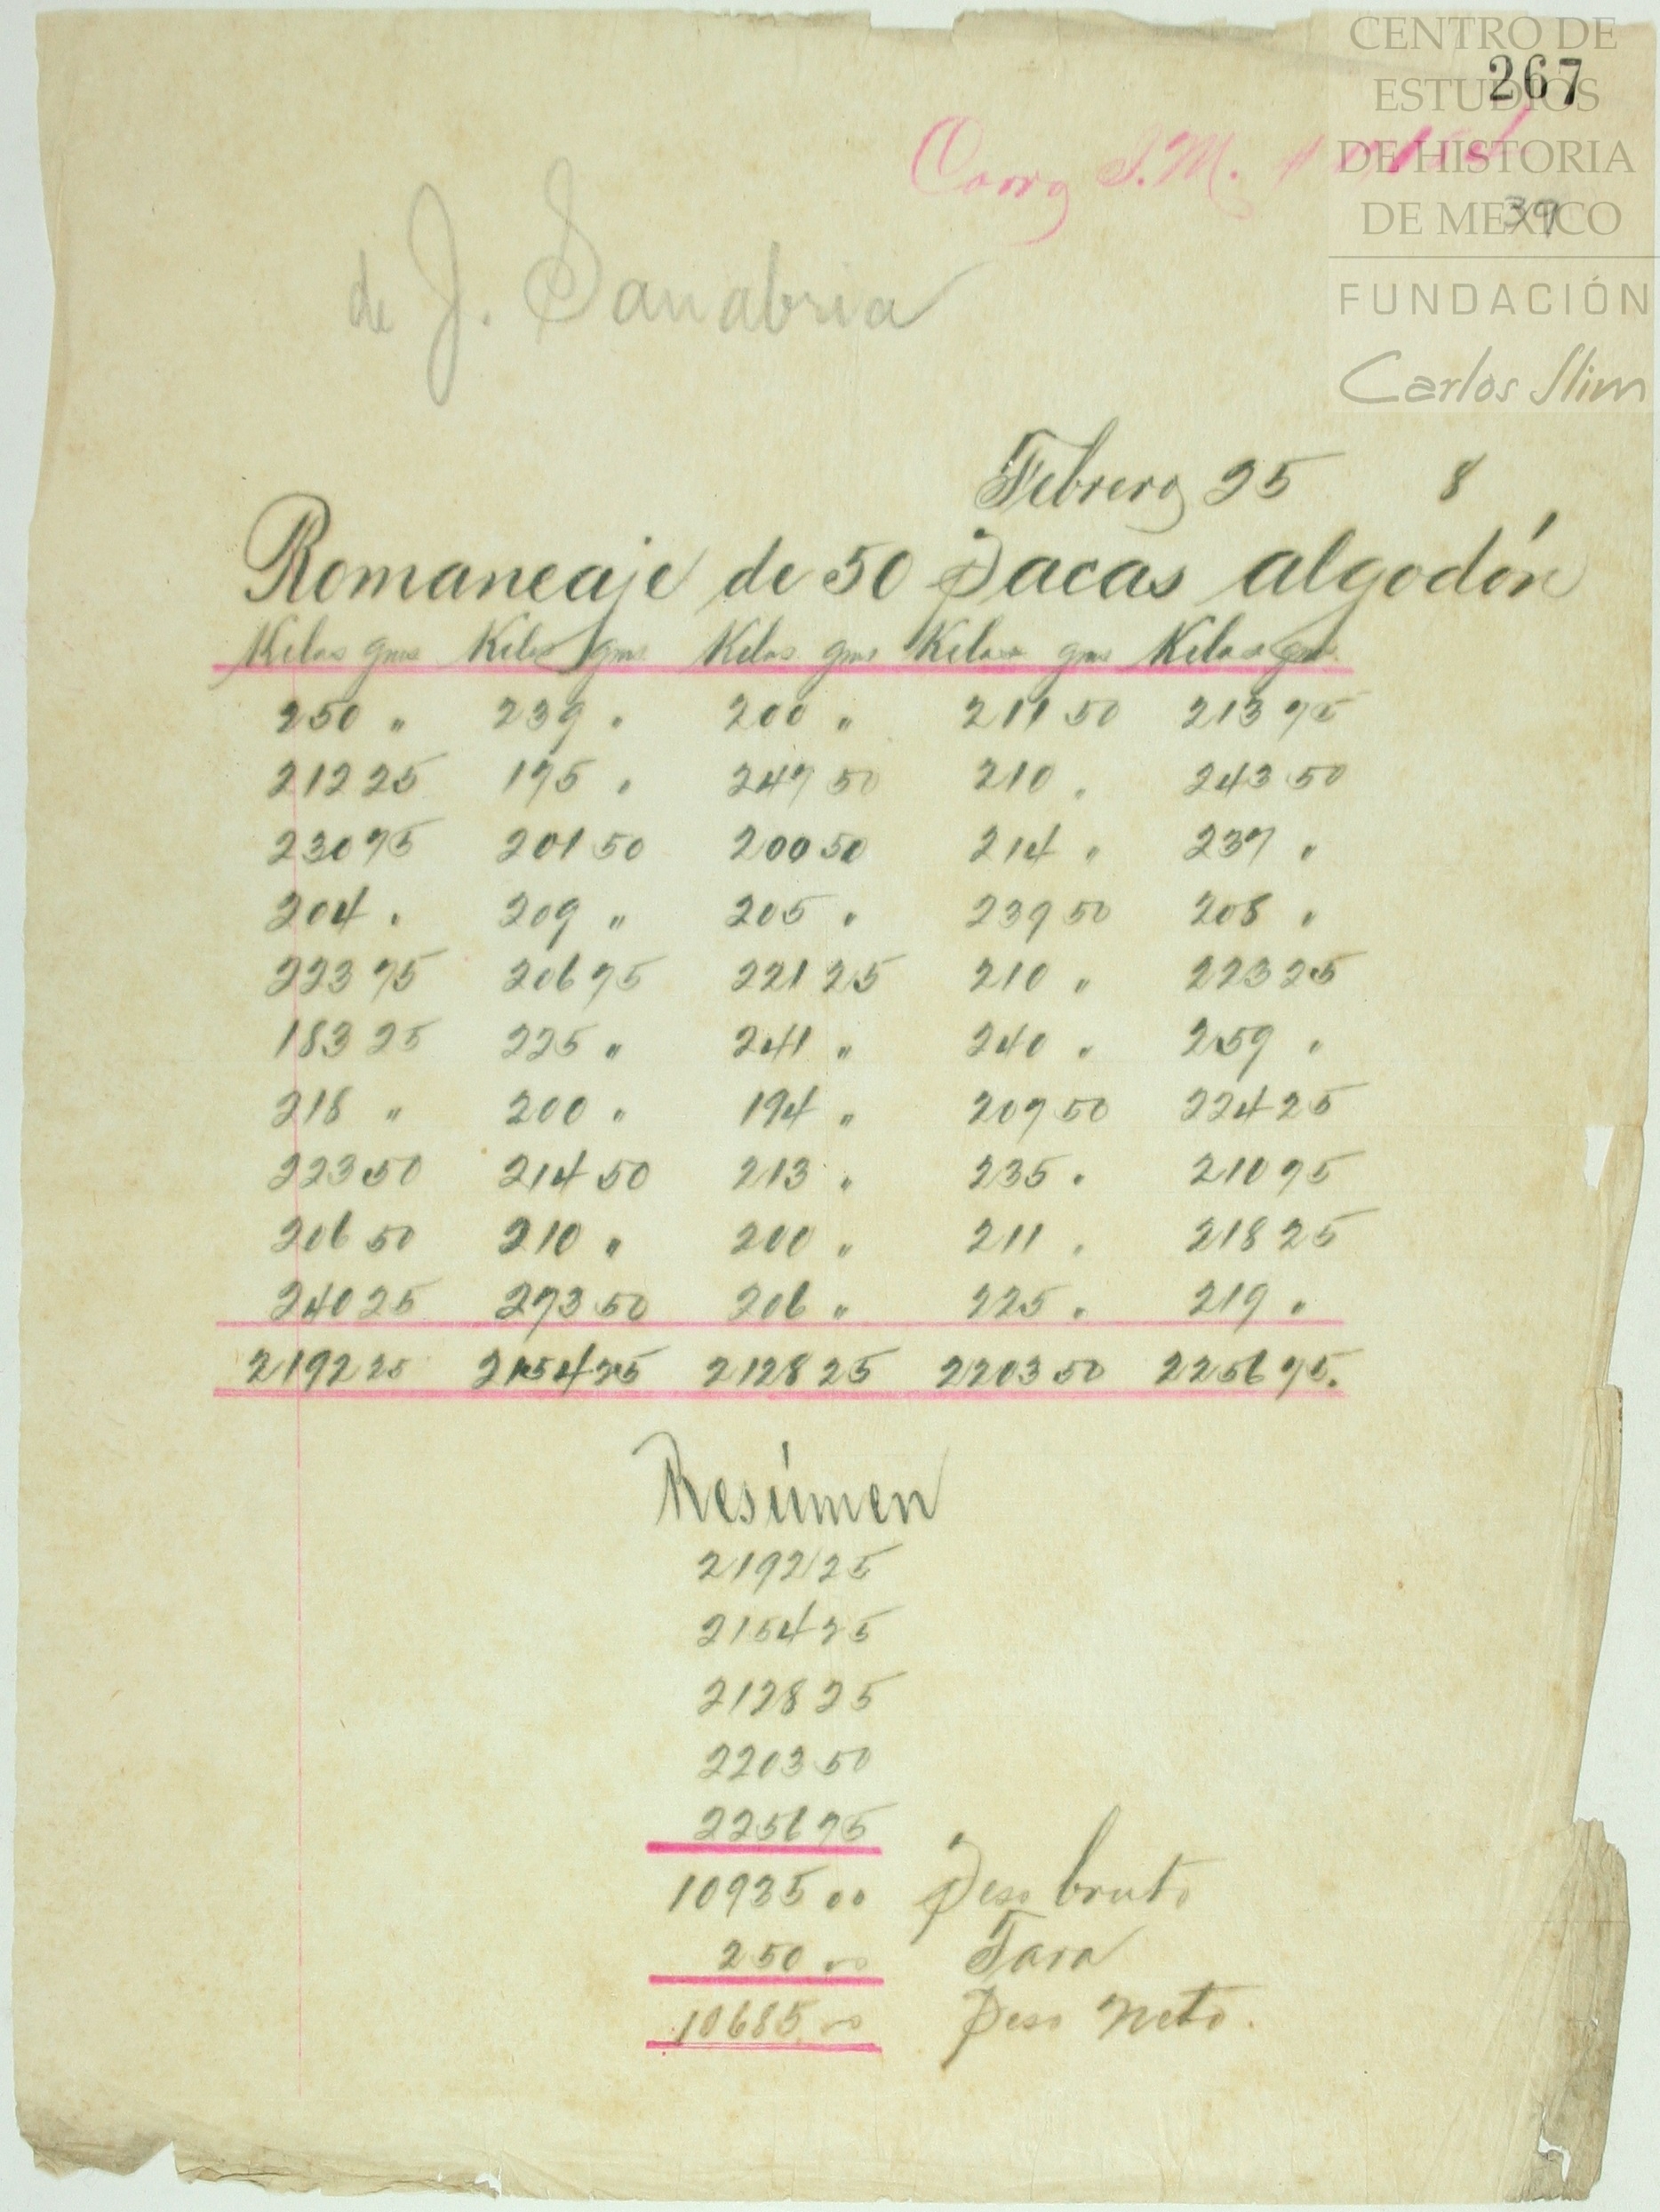 CENTRO DE
267
ESTUDIOS
DE HISTORIA
Corrg S.M.
DE MEXICO
39
FUNDACIÓN
Carlos Slim
de J. Sanabria
Febrero 25 8
Romaneaje de 50 Pacas algodón
Kilos gms Kilos gms Kilos gms Kilos gms Kilos gms
250 " 239 " 200 " 211 50 213 75
212 25 175 " 247 50 210 " 243 50
230 75 201 50 200 50 214 " 237 "
204 " 209 " 205 " 239 50 208 "
223 75 206 75 221 25 210 " 223 25
183 25 225 " 241 " 240 " 259 "
218 " 200 " 194 " 207 50 224 25
223 50 214 50 213 " 235 " 210 75
206 50 210 " 200 " 211 " 218 25
240 25 273 50 206 " 225 " 219 "
2192 25 2154 25 2128 25 2203 50 2256 75.
Resúmen
2192 25
2154 25
2128 25
2203 50
2256 75
10935 00 Peso bruto
250 00 Tara
10685 00 Peso Neto.